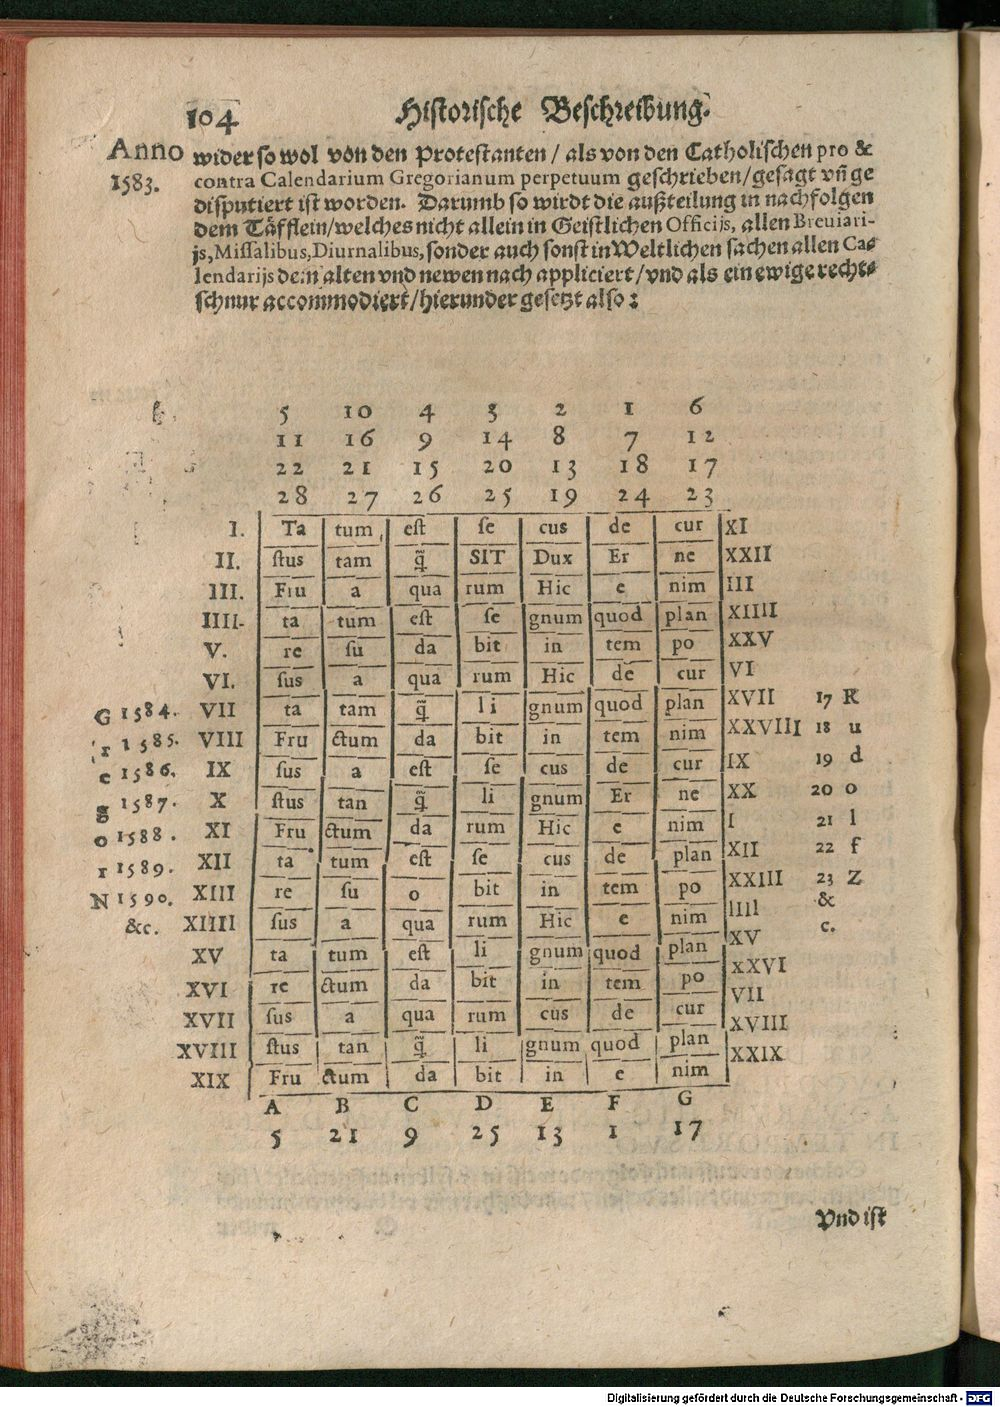 104 Historische Beschreibung.
Anno wider so wol von den Protestanten / als von den Catholischen pro &
1583. contra Calendarium Gregorianum perpetuum geschrieben/gesagt vñ ge
disputiert ist worden. Darumb so wirdt die außteilung in nachfolgen
dem Täfflein/welches nicht allein in Geistlichen Officijs, allen Breuiari-
js, Missalibus, Diurnalibus, sonder auch sonst in Weltlichen sachen allen Ca-
lendarijs dem alten vnd newen nach appliciert/vnd als ein ewige recht-
schnur accommodiert/hierunder gesetzt also:
5 10 4 3 2 1 6
11 16 9 14 8 7 12
22 21 15 20 13 18 17
28 27 26 25 19 24 23
I. Ta tum est se cus de cur XI
II. stus tam q̃ SIT Dux Er ne XXII
III. Fru a qua rum Hic e nim III
IIII. ta tum est se gnum quod plan XIIII
V. re su da bit in tem po XXV
VI. sus a qua rum Hic de cur VI
G 1584. VII ta tam q̃ li gnum quod plan XVII 17 K
r 1585. VIII Fru ctum da bit in tem nim XXVIII 18 u
c 1586. IX sus a est se cus de cur IX 19 d
g 1587. X stus tan q̃ li gnum Er ne XX 20 o
o 1588. XI Fru ctum da rum Hic e nim I 21 l
r 1589. XII ta tum est se cus de plan XII 22 f
N 1590. XIII re su o bit in tem po XXIII 23 Z
&c. XIIII sus a qua rum Hic e nim IIII & c.
XV ta tum est li gnum quod plan XV
XVI re ctum da bit in tem po XXVI
XVII sus a qua rum cus de cur VII
XVIII stus tan q̃ li gnum quod plan XVIII
XIX Fru ctum da bit in e nim XXIX
A B C D E F G
5 21 9 25 13 1 17
Vnd ist
Digitalisierung gefördert durch die Deutsche Forschungsgemeinschaft - DFG